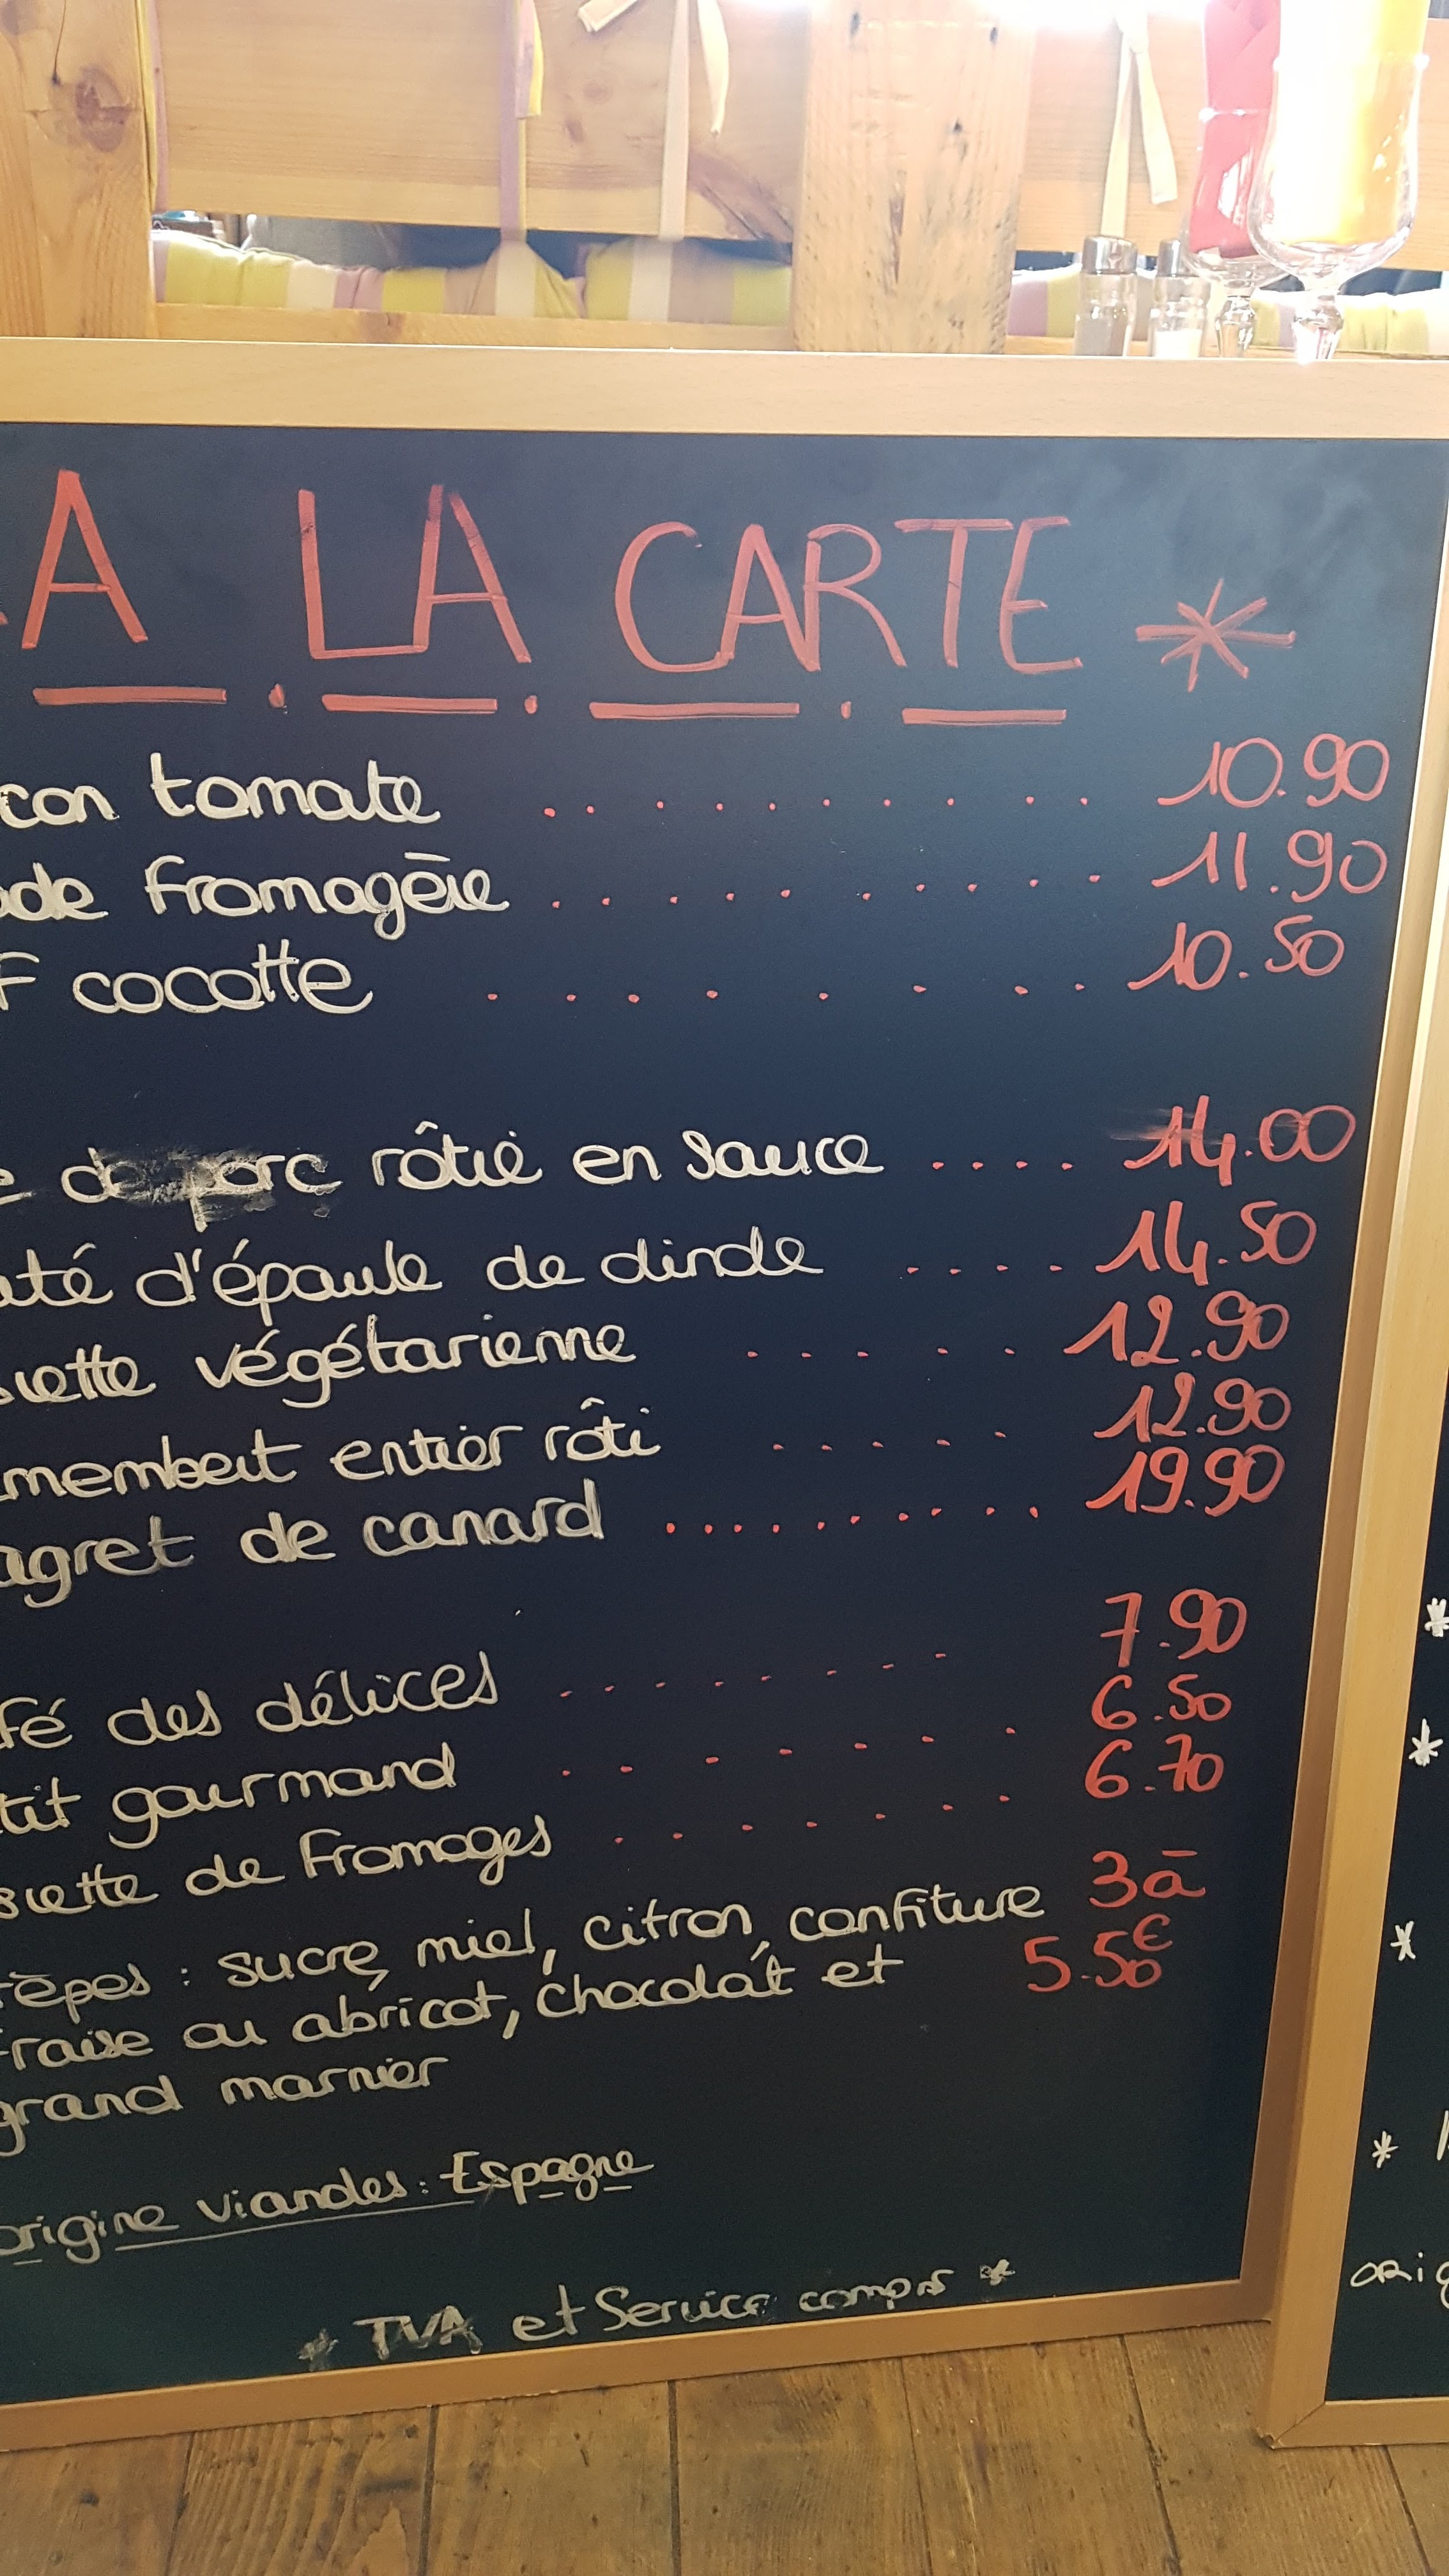 A LA CARTE *
con tomate .......... 10.90
ade fromagère ......... 11.90
f cocotte ........ 10.50
e de porc rôtie en sauce .... 14.00
uté d'épaule de dinde .... 14.50
iette végétarienne ..... 12.90
membert entier rôti ..... 12.90
agret de canard ......... 19.90
fé des délices ....... 7.90
tit gourmand ....... 6.50
siette de fromages ....... 6.70
rêpes : sucre, miel, citron, confiture 3 à
fraise ou abricot, chocolat et 5.50€
grand marnier
origine viandes : Espagne
* TVA et Service compris *
*
*
*
*
orig